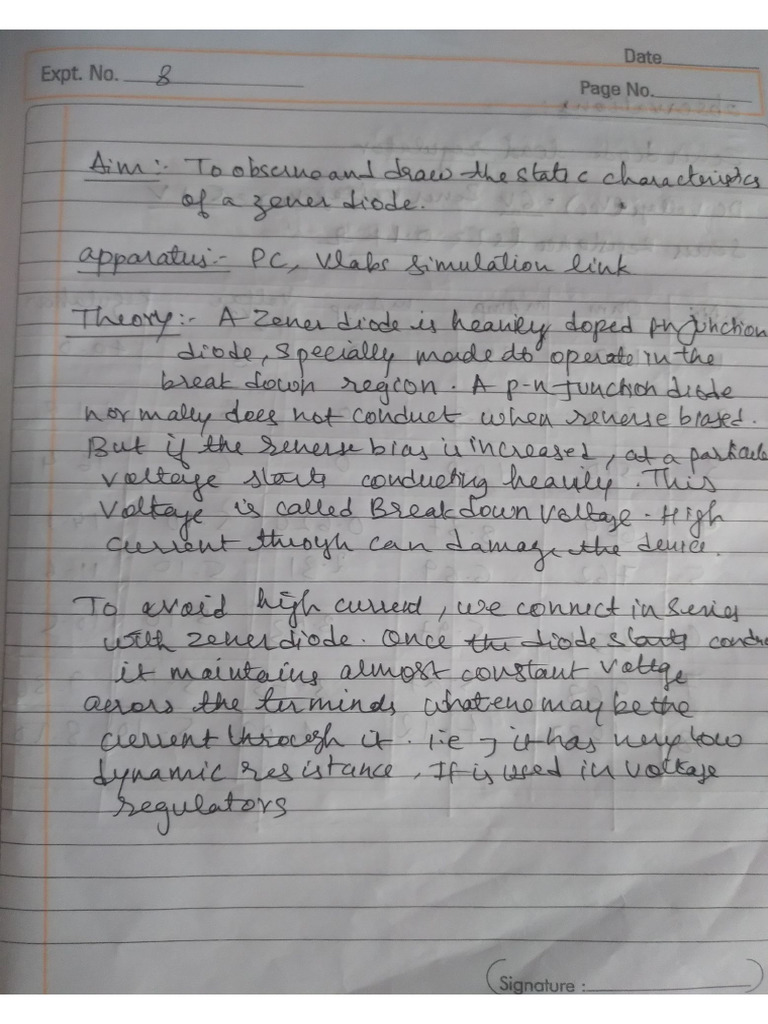 Date
Expt. No. 8
Page No.
Aim:- To observe and draw the static characteristics
of a zener diode.
apparatus:- PC, Vlabs simulation link
Theory:- A Zener diode is heavily doped pn junction
diode, specially made to operate in the
break down region. A p-n junction diode
normally does not conduct when reverse biased.
But if the reverse bias is increased, at a particula
voltage starts conducting heavily. This
Voltage is called Breakdown Voltage. High
current through can damage the device.
To avoid high current, we connect in series
with zener diode. Once the diode starts condu
it maintains almost constant voltge
across the terminds whatever may be the
current through it. ie, it has very low
dynamic resistance. It is used in voltage
regulators
Signature :